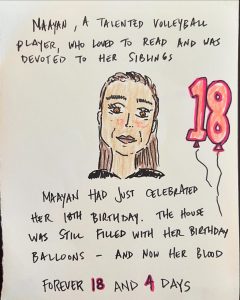 MAAYAN, A TALENTED VOLLEYBALL
PLAYER, WHO LOVED TO READ AND WAS
DEVOTED TO HER SIBLINGS
18
MAAYAN HAD JUST CELEBRATED
HER 18TH BIRTHDAY. THE HOUSE
WAS STILL FILLED WITH HER BIRTHDAY
BALLOONS – AND NOW HER BLOOD
FOREVER 18 AND 4 DAYS